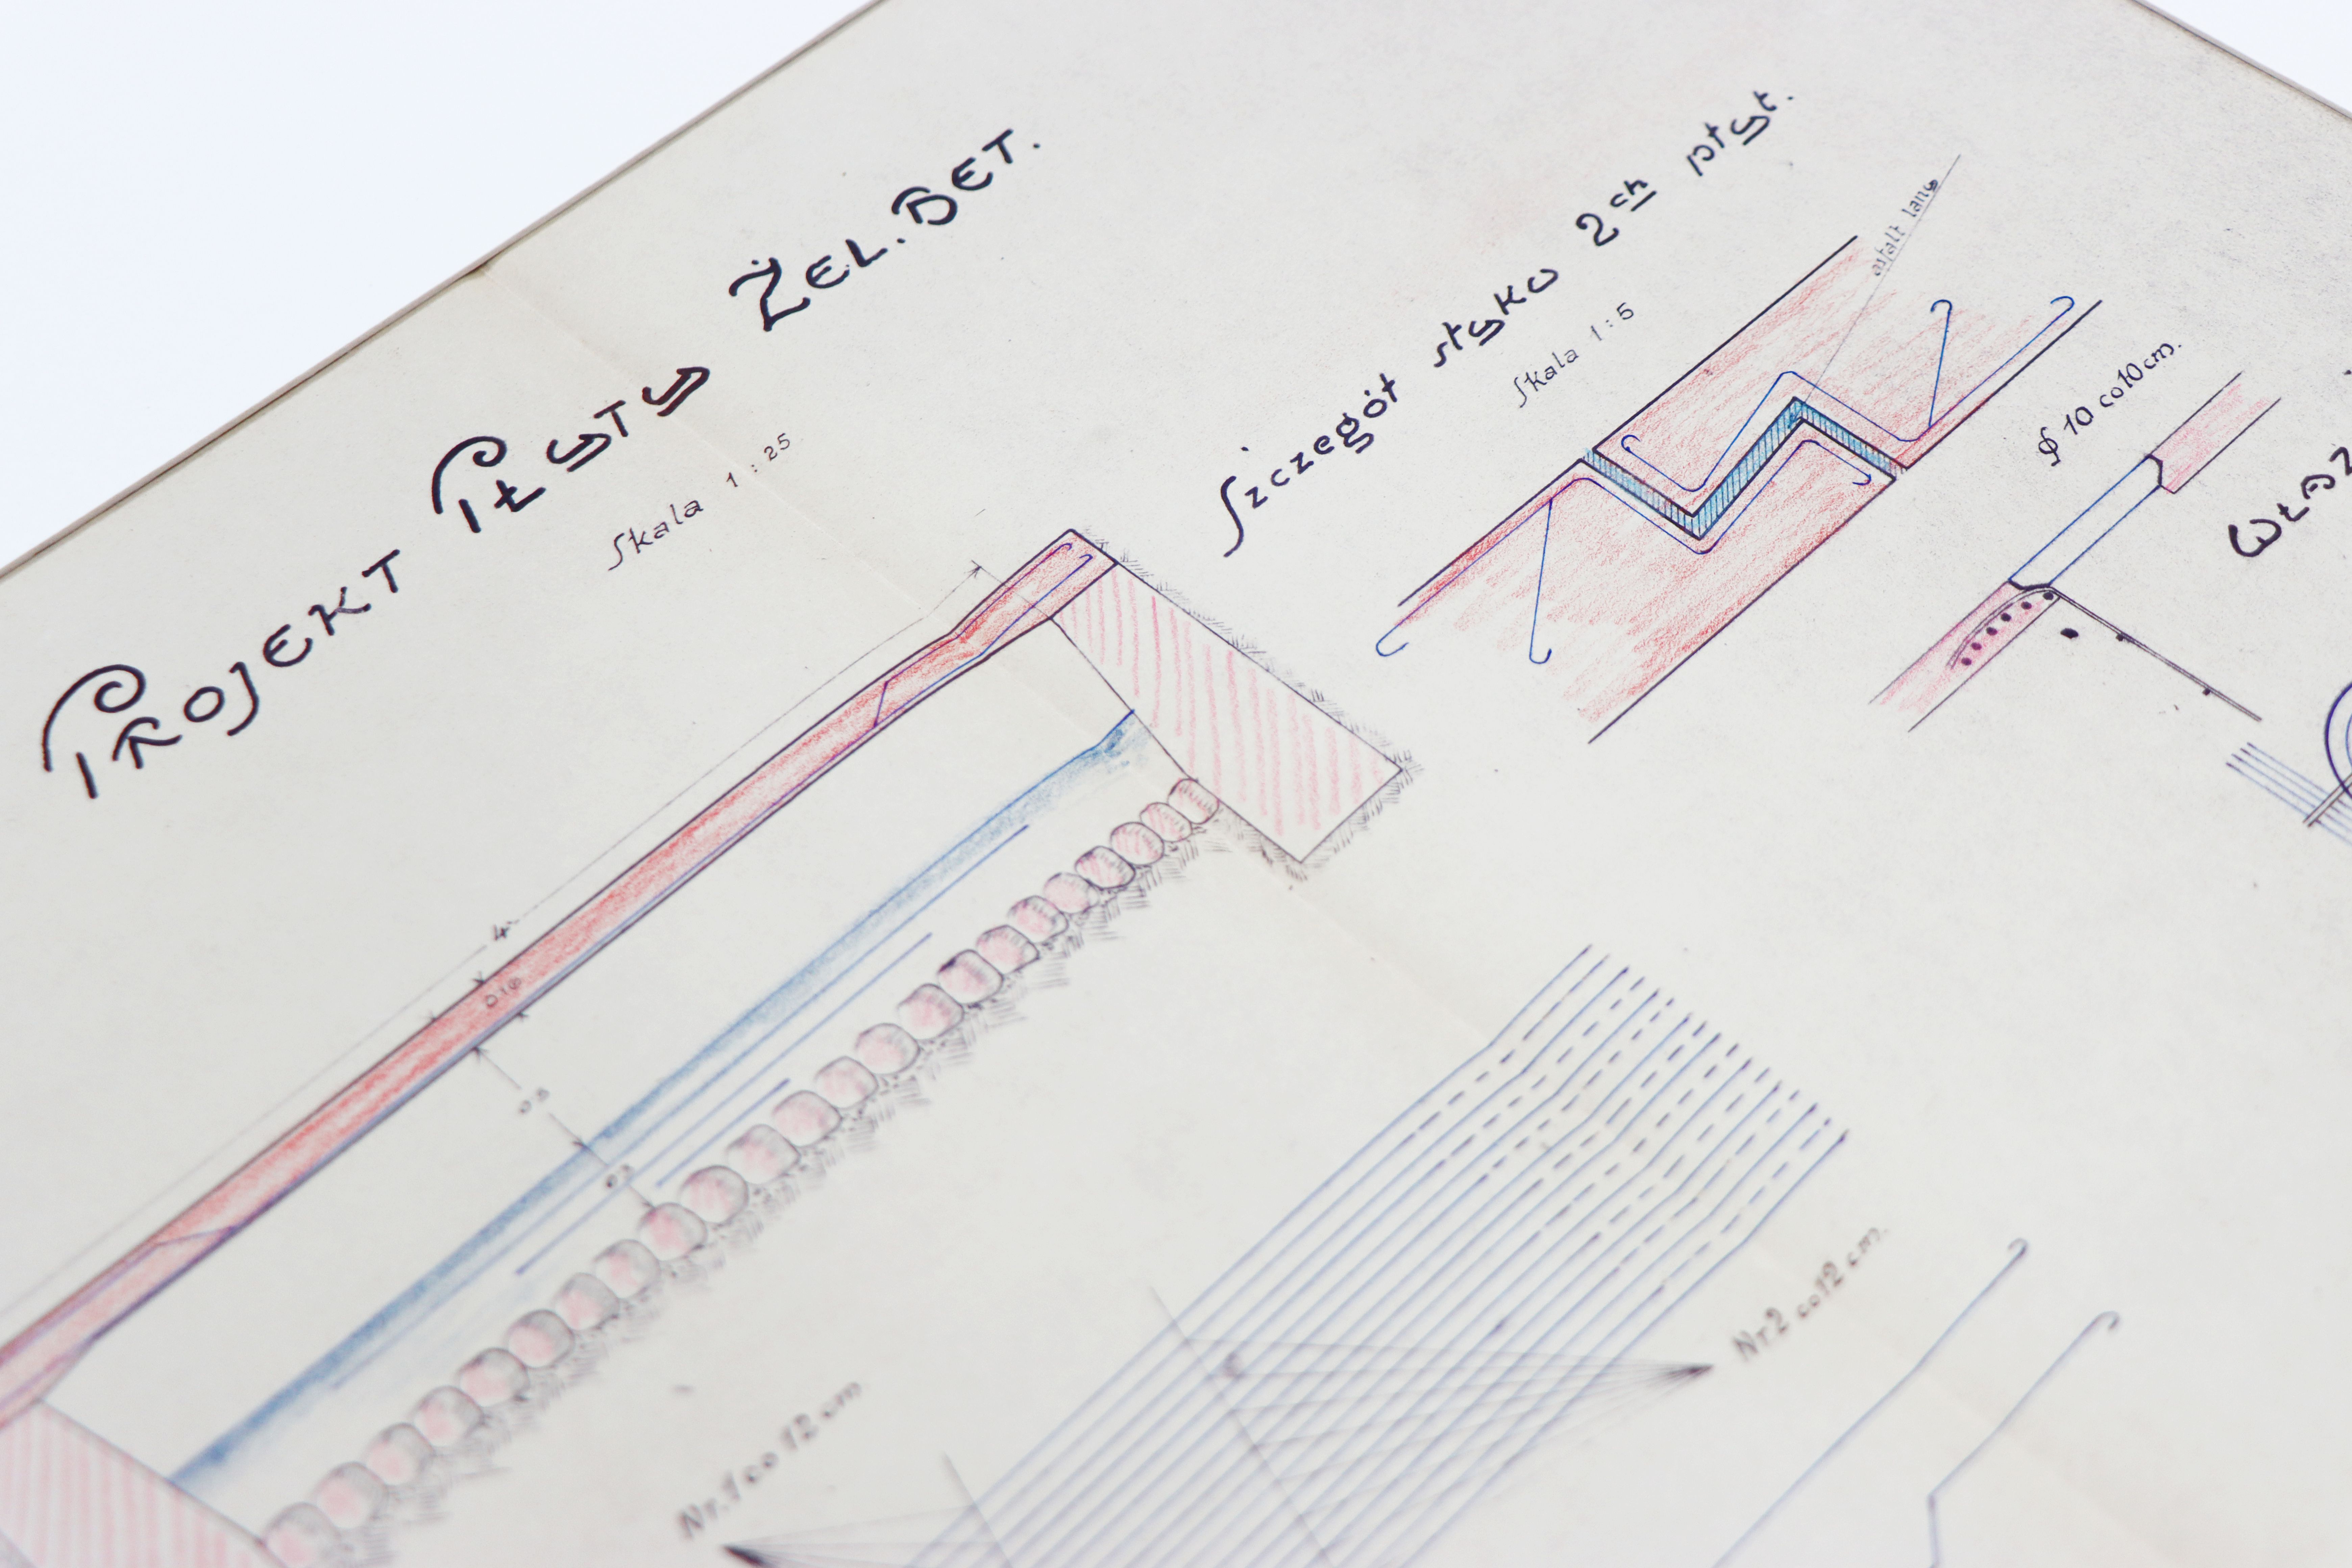 PROJEKT PŁYTY ŻEL.BET.
Skala 1:25
Szczegół styku 2ch płyt.
Skala 1:5
asfalt lany
ϕ 10 co 10 cm.
WŁAZ
4
0.16
0.5
0.3
Nr.2 co 12 cm.
Nr.1 co 12 cm